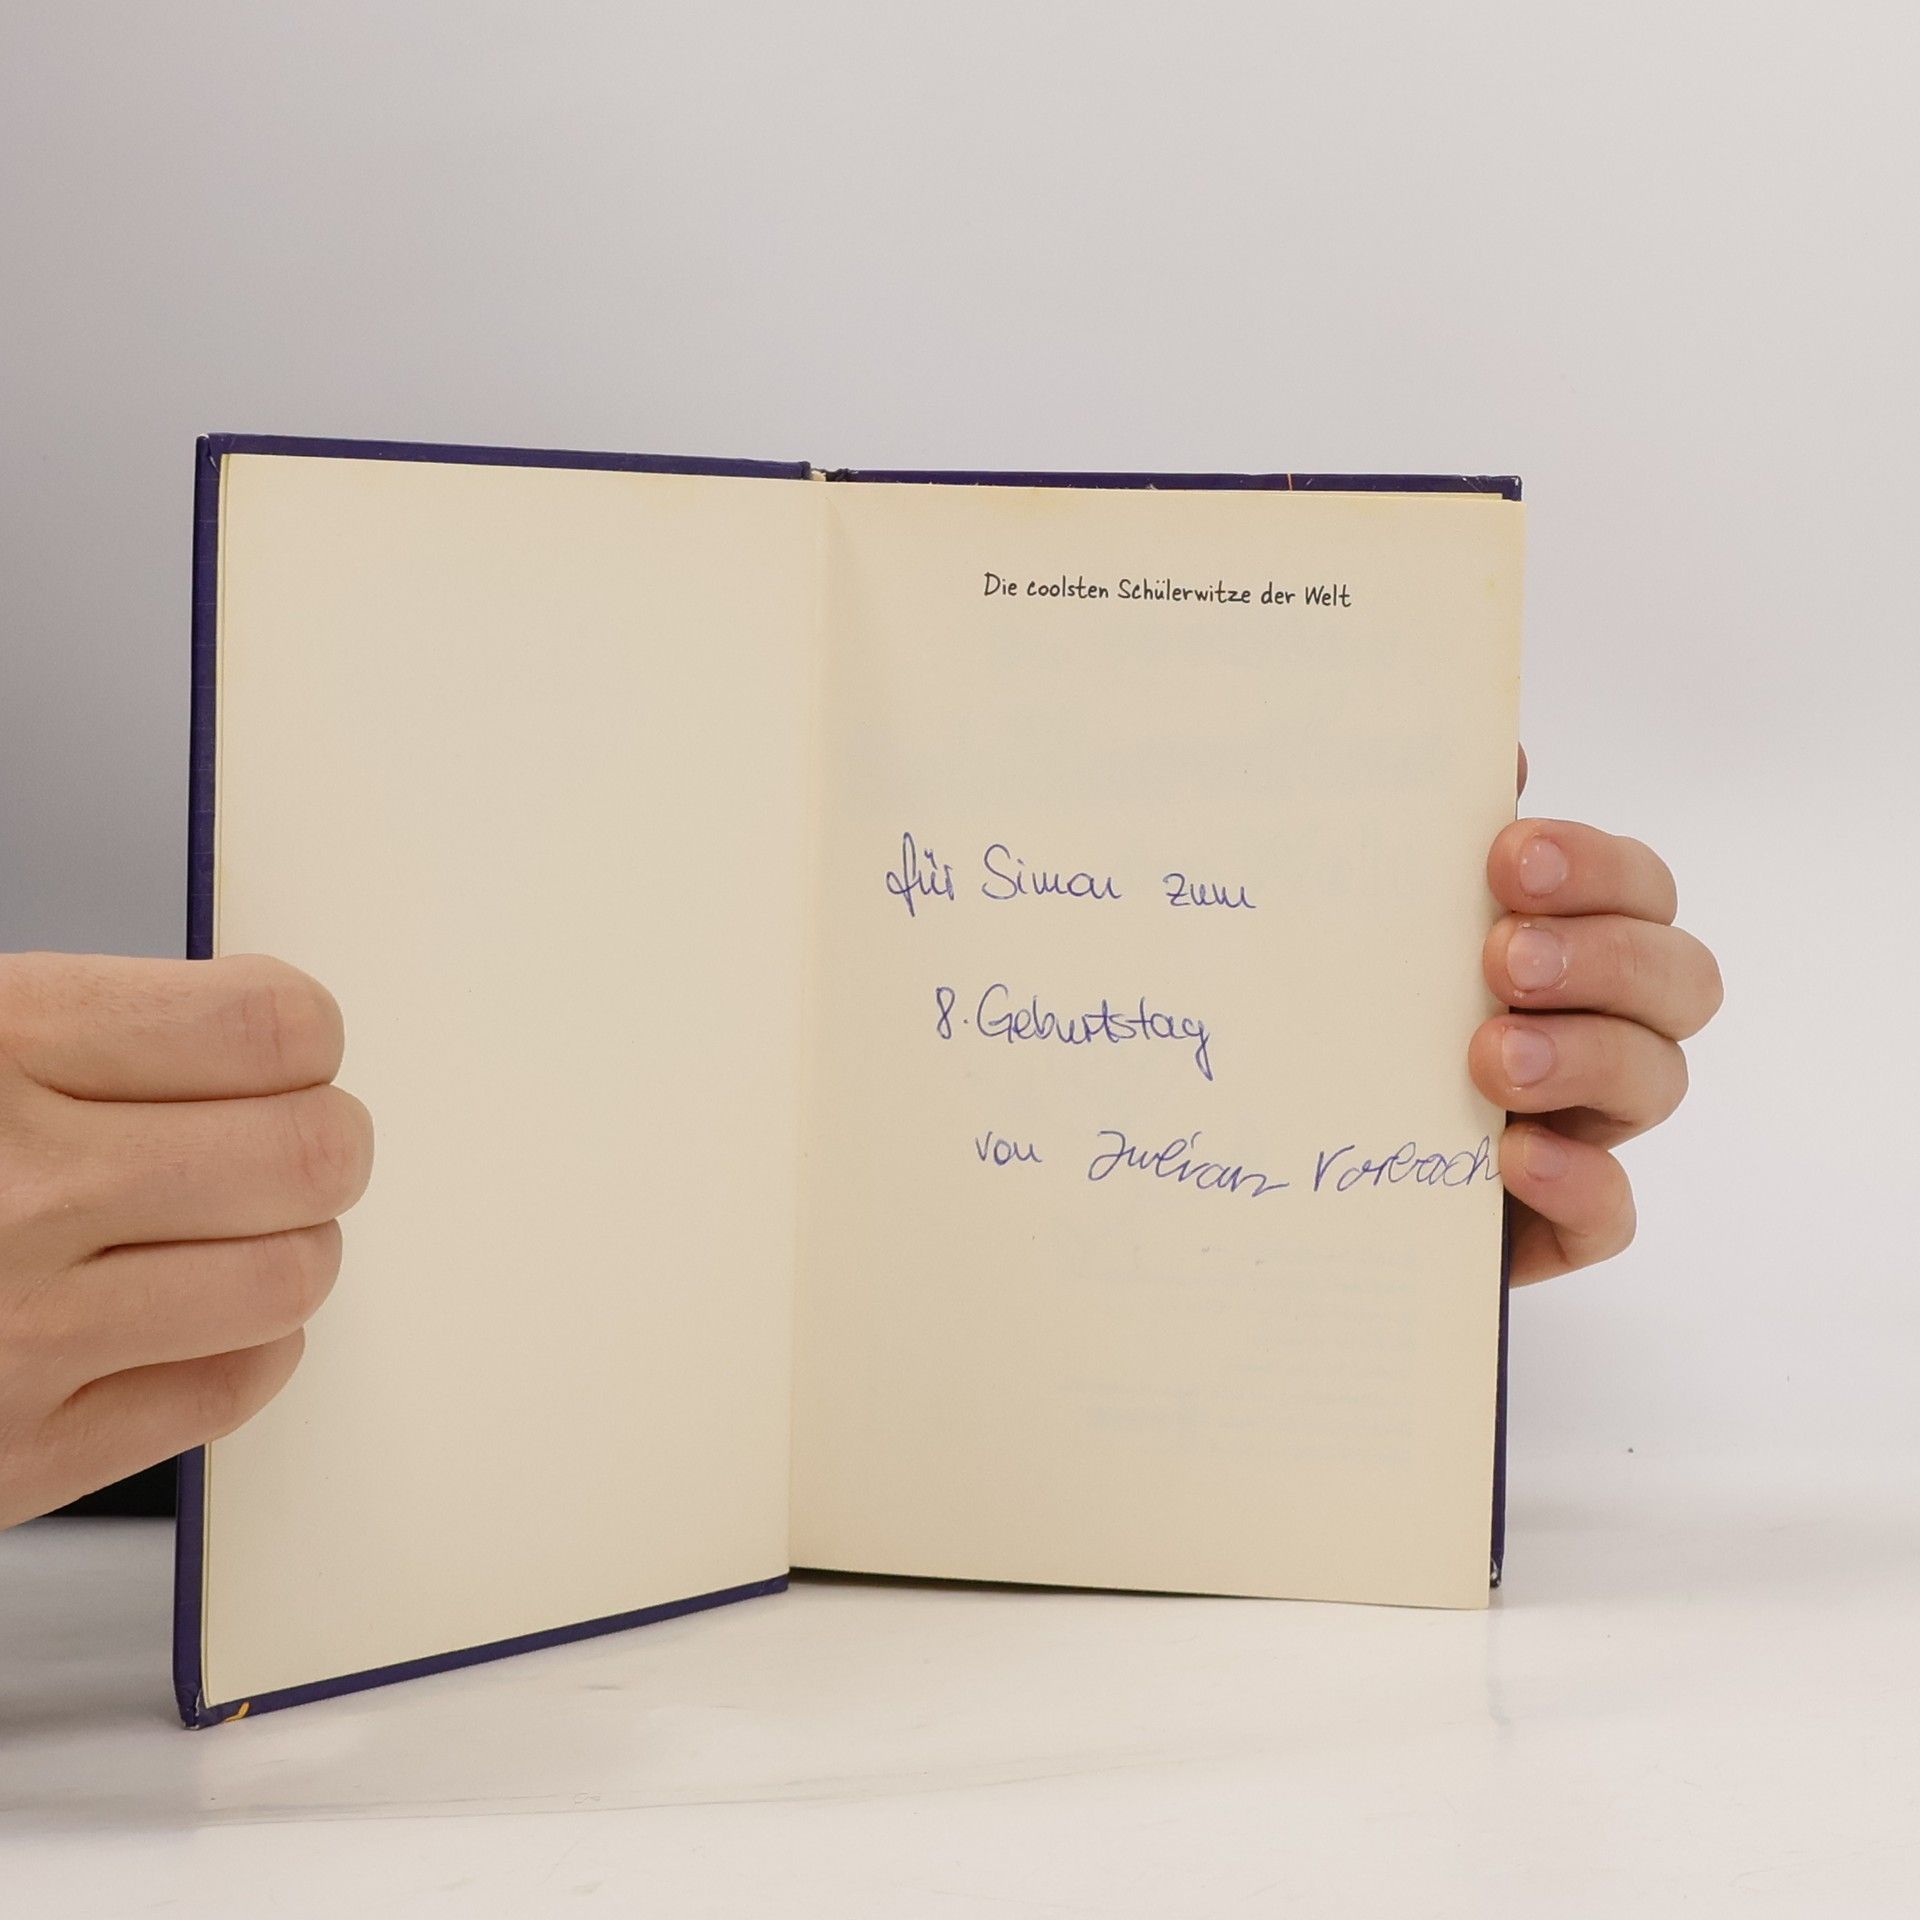 Die coolsten Schülerwitze der Welt
für Simon zum
8. Geburtstag
von Julian Vorbach